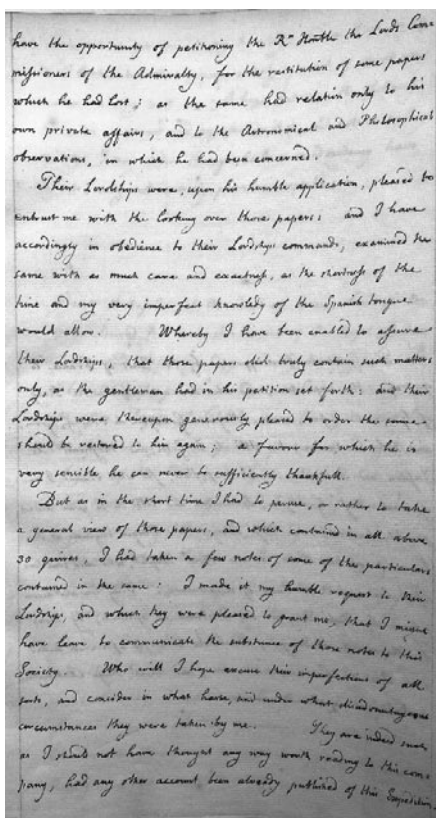 have the opportunity of petitioning the Rt Honble the Lords Com-
missioners of the Admiralty, for the restitution of some papers
which he had lost; as the same had relation only to his
own private affairs, and to the Astronomical and Philosophical
observations, in which he had been concerned.
Their Lordships were, upon his humble application, pleased to
entrust me with the looking over those papers: and I have
accordingly in obedience to their Lordships commands, examined the
same with as much care and exactness, as the shortness of the
time and my very imperfect knowledg of the Spanish tongue
would allow. Whereby I have been enabled to assure
their Lordships, that those papers did truly contain such matters
only, as the gentleman had in his petition set forth: and their
Lordships were thereupon generously pleased to order the same
should be restored to him again; a favour for which he is
very sensible he can never be sufficiently thankfull.
But as in the short time I had to peruse, or rather to take
a general view of those papers, and which contained in all above
30 quires, I had taken a few notes of some of the particulars
contained in the same: I made it my humble request to their
Lordships, and which they were pleased to grant me, that I might
have leave to communicate the substance of those notes to this
Society. Who will I hope excuse their imperfections of all
sorts, and consider in what haste, and under what disadvantageous
circumstances they were taken by me. They are indeed such
as I should not have thought any way worth reading to this com-
pany, had any other account been already published of this Expedition